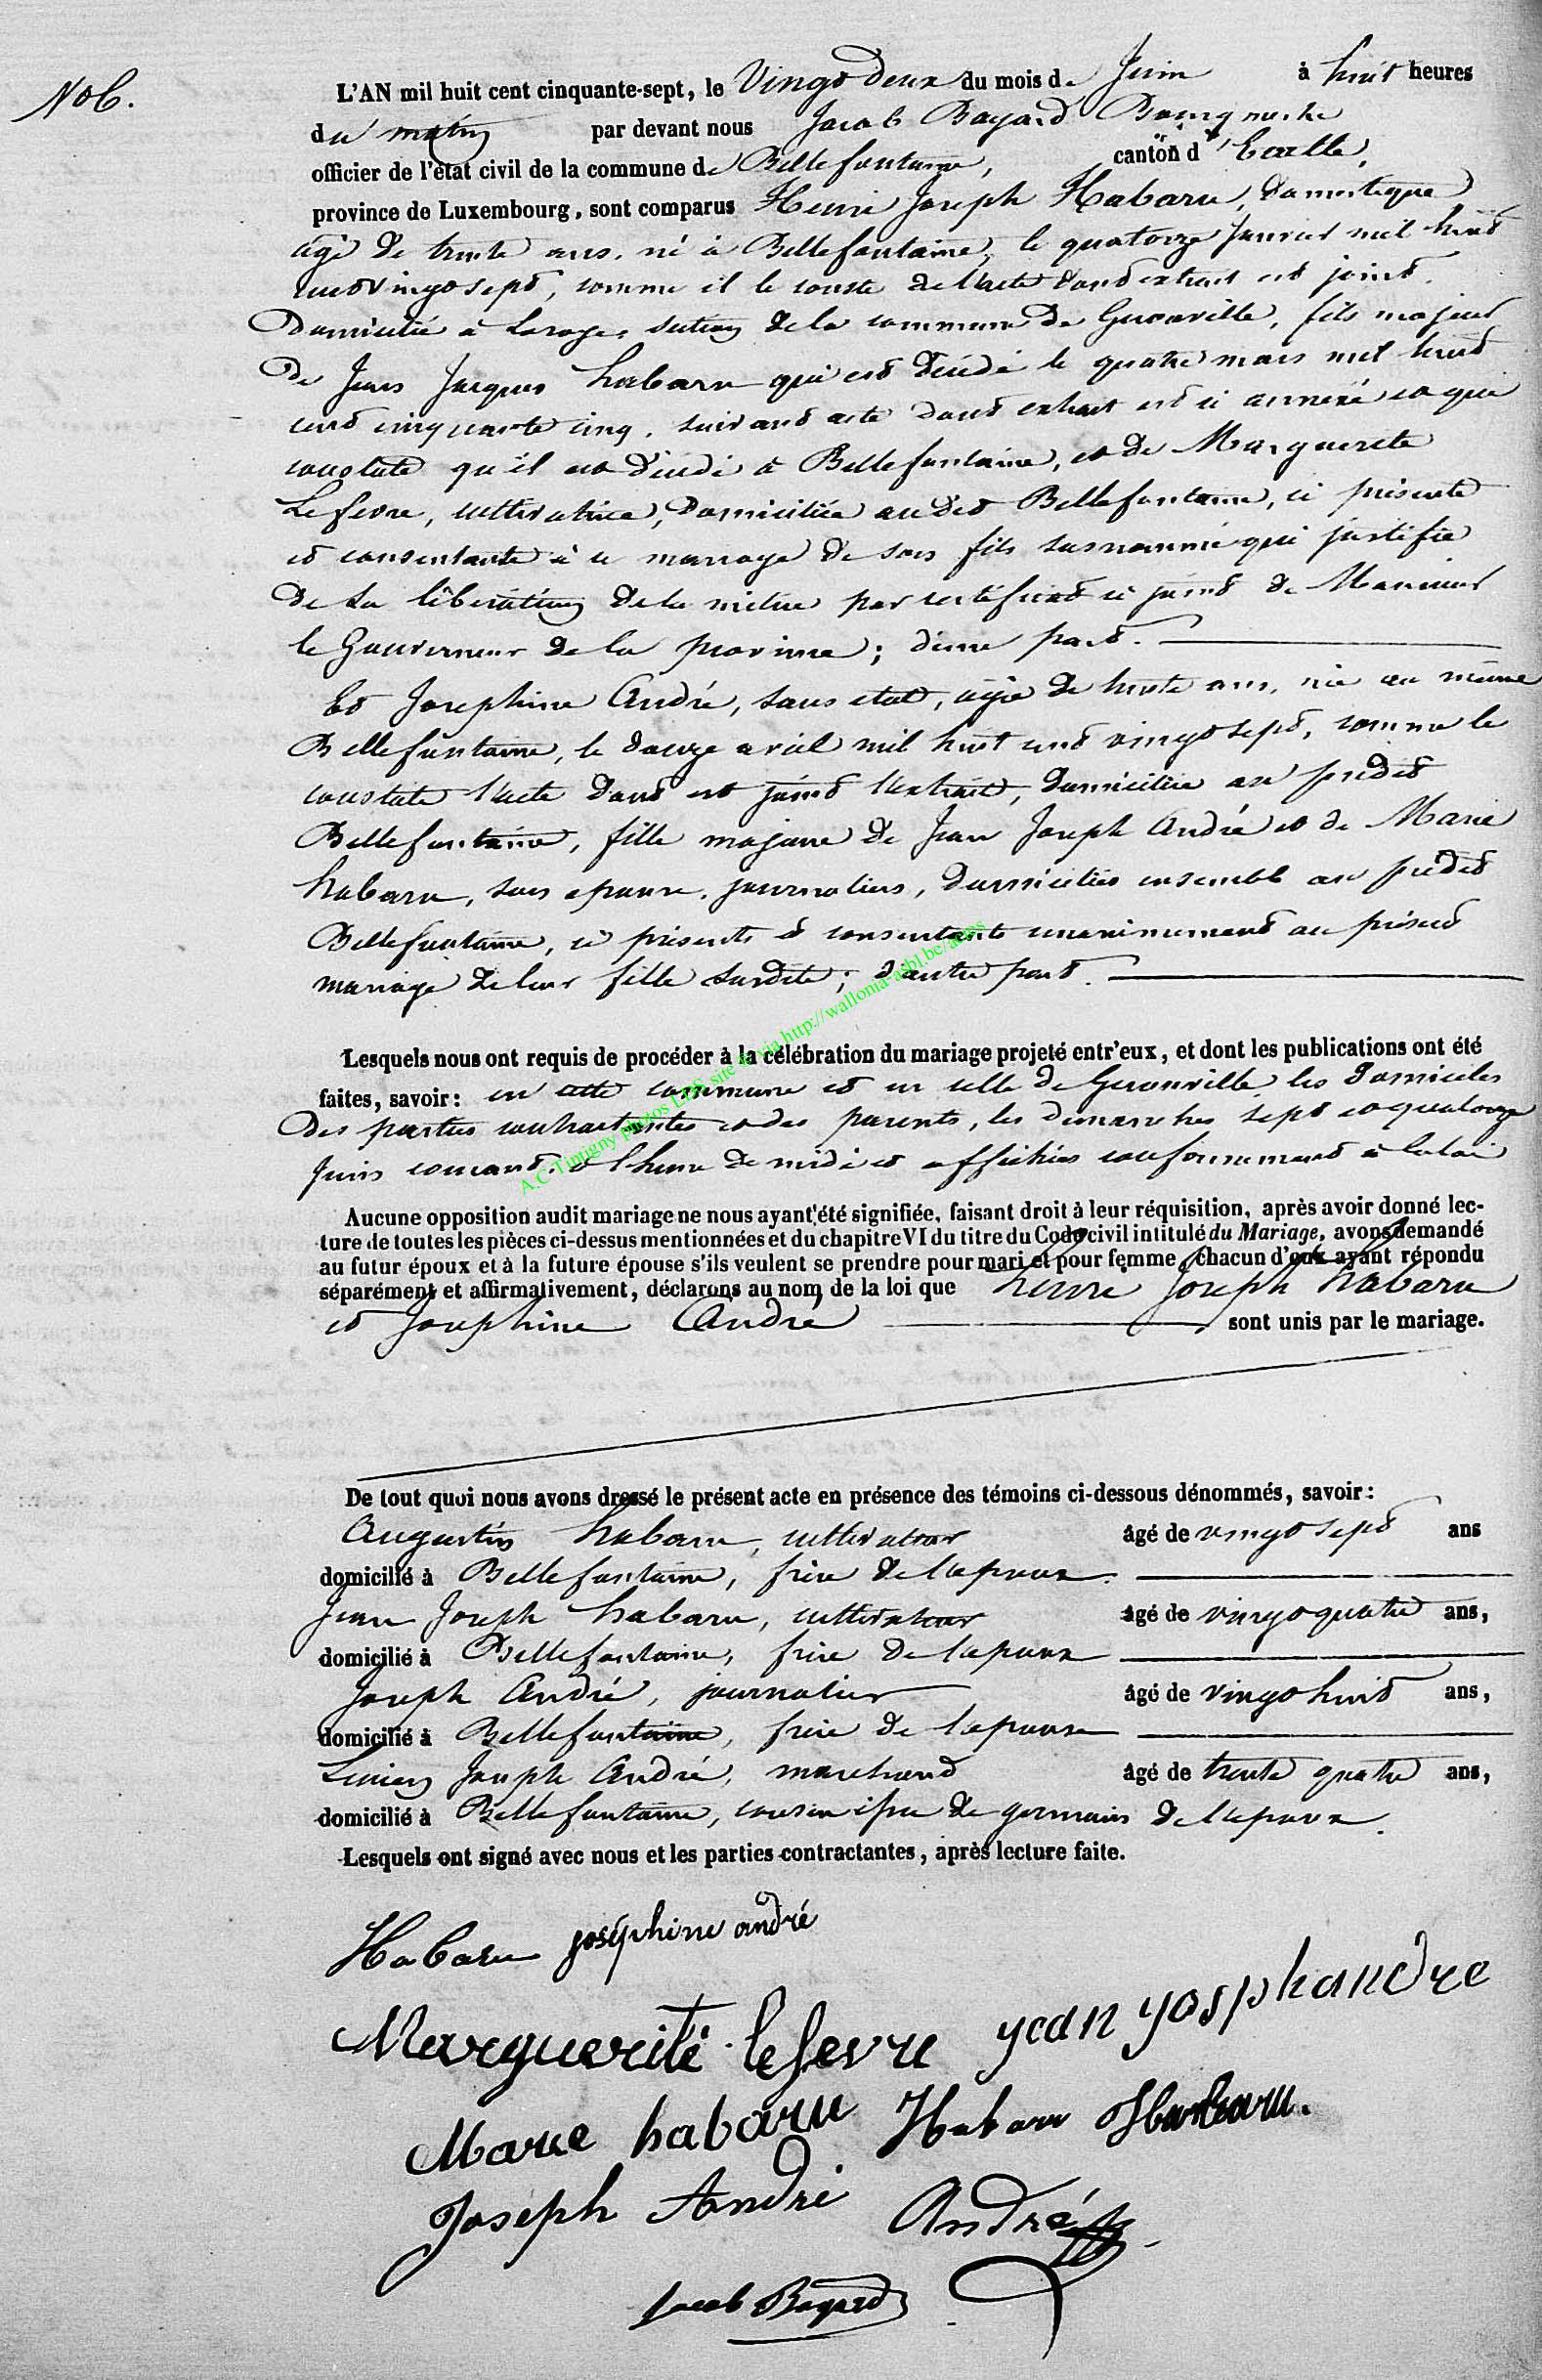 No 6.
L'AN mil huit cent cinquante-sept, le Vingt deux du mois de Juin à huit heures
du matin par devant nous Jacob Bayard Bourgmestre
officier de l'état civil de la commune de Bellefontaine, canton d'Etalle,
province de Luxembourg, sont comparus Henri Joseph Habaru, domestique
agé de trente ans, né à Bellefontaine, le quatorze Janvier mil huit
cent vingt sept, comme il le conste de l'acte dont extrait est joint,
Domicilié à section de la commune de Gerouville, fils majeur
De Jean Jacques habaru qui est décédé le quatre mars mil huit
cent cinquante cinq, suivant acte dont extrait est ci annexé et qui
constate qu'il est décédé à Bellefontaine, et de Marguerite
Lefevre, cultivatrice, domiciliée au dit Bellefontaine, ci présente
et consentante à ce mariage de son fils susnommé qui justifie
De sa libération de la milice par certificat ci joint de Monsieur
le Gouverneur de la province; d'une part.
Et Josephine André, sans etat, agée de trente ans, née au même
Bellefontaine, le douze avril mil huit cent vingt sept, comme le
constate l'acte dont est joint l'extrait, domiciliée au prédit
Bellefontaine, fille majeure de Jean Joseph André et de Marie
habaru, son epouse, journaliers, domiciliés ensemble au prédit
Bellefontaine, ci présents et consentants unanimement au présent
mariage de leur fille susdite; d'autre part.
Lesquels nous ont requis de procéder à la célébration du mariage projeté entr'eux, et dont les publications ont été
faites, savoir: en cette commune et en celle de Gerouville les domiciles
Des parties contractantes et des parents, les dimanches sept et quatorze
Juin courant, à l'heure de midi et affichées conformement à la loi
A.C-Tintigny photos LDS site via http://wallonia-asbl.be/actes
Aucune opposition audit mariage ne nous ayant été signifiée, faisant droit à leur réquisition, après avoir donné lec-
ture de toutes les pièces ci-dessus mentionnées et du chapitre VI du titre du Code civil intitulé du Mariage, avons demandé
au futur époux et à la future épouse s'ils veulent se prendre pour mari et pour femme, chacun d'eux ayant répondu
séparément et affirmativement, déclarons au nom de la loi que henri Joseph habaru
et Josephine André sont unis par le mariage.
De tout quoi nous avons dressé le présent acte en présence des témoins ci-dessous dénommés, savoir:
Augustin habaru, cultivateur âgé de vingt sept ans
domicilié à Bellefontaine, frère de l'epoux.
Jean Joseph habaru, cultivateur âgé de vingt quatre ans,
domicilié à Bellefontaine, frère de l'epoux
Joseph André, journalier âgé de vingt huit ans,
domicilié à Bellefontaine, frère de l'epouse
Lucien Joseph André, marchand âgé de trente quatre ans,
domicilié à Bellefontaine, cousin issu de germain de l'epoux.
Lesquels ont signé avec nous et les parties contractantes, après lecture faite.
Habaru joséphine andré
Marguerite lefevre yean yosphandre
Marie habaru Habaru Habaru.
Joseph André André
Jacob Bayard